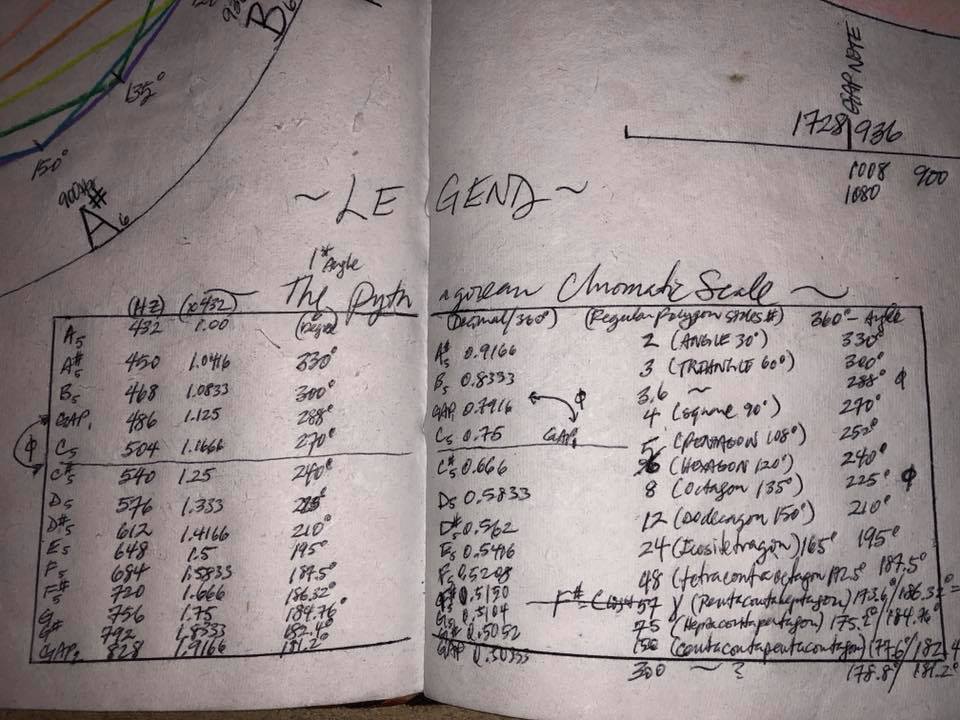 B6
135°
150°
900Hz
A#6
GAP NOTE
1728 936
1008 900
1080
~ LEGEND ~
1# Angle
(HZ) (x432) ~ The Pythagorean Chromatic Scale ~
(Degree) (Decimal/360°) (Regular Polygon sides #) 360° - Angle
A5 432 1.00
A#5 450 1.0416 330° A#5 0.9166 2 (ANGLE 30°) 330°
B5 468 1.0833 300° B5 0.8333 3 (TRIANGLE 60°) 300°
GAP1 486 1.125 288° GAP1 0.7916 ϕ 3.6 ~ 288° ϕ
C5 504 1.1666 270° C5 0.75 GAP1 4 (square 90°) 270°
ϕ
5 (PENTAGON 108°) 252°
C#5 540 1.25 240° C#5 0.666 6 (HEXAGON 120°) 240°
D5 576 1.333 225° D5 0.5833 8 (Octagon 135°) 225° ϕ
D#5 612 1.4166 210° D#5 0.562 12 (Dodecagon 150°) 210°
E5 648 1.5 195° E5 0.5416 24 (Icositetragon) 165° 195°
F5 684 1.5833 187.5° F5 0.5208 48 (tetracontaoctagon 172.5° 187.5°
F#5 720 1.666 186.32° 0.5150 F# 57 (Pentacontaheptagon) 173.6°/186.32°
G5 756 1.75 184.76° G5 0.5104 75 (Heptacontapentagon) 175.2°/184.76°
G# 792 1.8333 G# 0.5052 150 (177.6°/182.4
GAP2 828 1.9166 181.2° GAP 0.50333
300 ~ ? 178.8°/181.2°